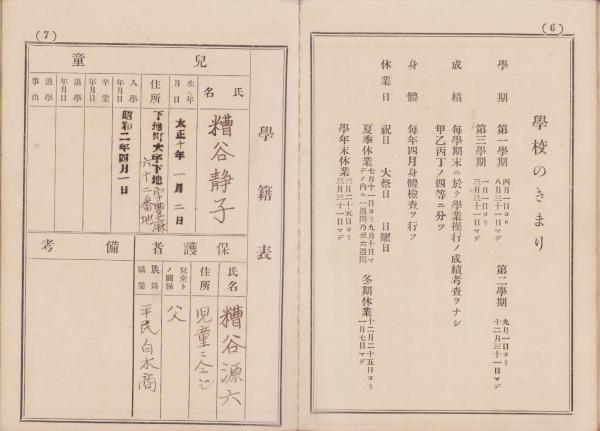 (6)
學校のきまり
學期 第一學期 四月一日ヨリ八月三十一日マデ 第二學期 九月一日ヨリ十二月三十一日マデ
第三學期 一月一日ヨリ三月三十一日マデ
成績 每學期末ニ於テ學業操行ノ成績考査ヲナシ
甲乙丙丁ノ四等ニ分ツ
身體 每年四月身體檢査ヲ行フ
休業日 祝日 大祭日 日曜日
夏季休業 七月十一日ヨリ九月十日マデノ內ニ一週間乃至六週間 冬期休業 十二月二十五日ヨリ一月七日マデ
學年末休業 三月二十五日ヨリ三月三十一日マデ
(7)
學籍表
兒童
氏名 糟谷靜子
生年月日 大正十年一月二日
住所 下地町大字下地字豐麻
六十二番地
入學年月日 昭和二年四月一日
卒業年月日
退學年月日
退學事由
保護者
氏名 糟谷源六
住所 児童ニ仝ジ
兒童トノ關係 父
族籍職業 平民 白木商
備考